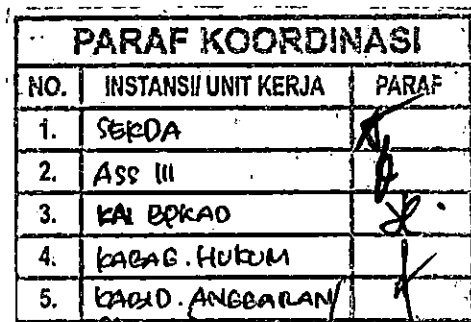 PARAF KOORDINASI
NO. INSTANSI/ UNIT KERJA PARAF
1. SEKDA
2. ASS III
3. KA BPKAD
4. KABAG. HUKUM
5. KABID. ANGGARAN